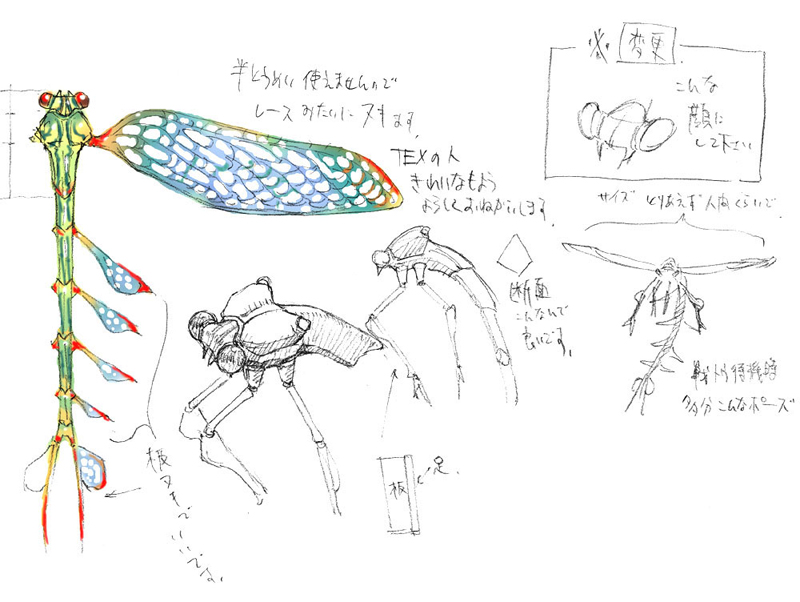 半とうめい使えませんので
レースみたいにヌキます。
TEXの人
きれいなもよう
よろしくおねがいします。
※変更
こんな
顔に
して下さい
サイズ とりあえず人内くらいで
断面
こんなんで
良いです。
戦トウ待機時
多分こんなポーズ
板ヌキでいいべな
板
足.